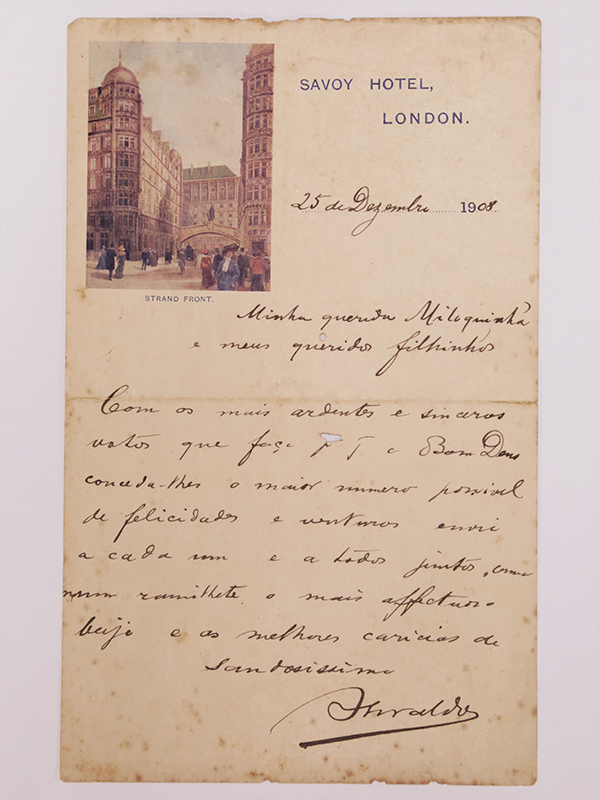 SAVOY HOTEL,
LONDON.
25 de Dezembro 1908.
STRAND FRONT.
Minha querida Miloquinha
e meus queridos filhinhos
Com os mais ardentes e sinceros
votos que faço p o Bom Deus
conceda-lhes o maior numero possivel
de felicidades e venturas envio
a cada um e a todos juntos, como
num ramilhete o mais affectuoso
beijo e as melhores caricias do
Saudosissimo